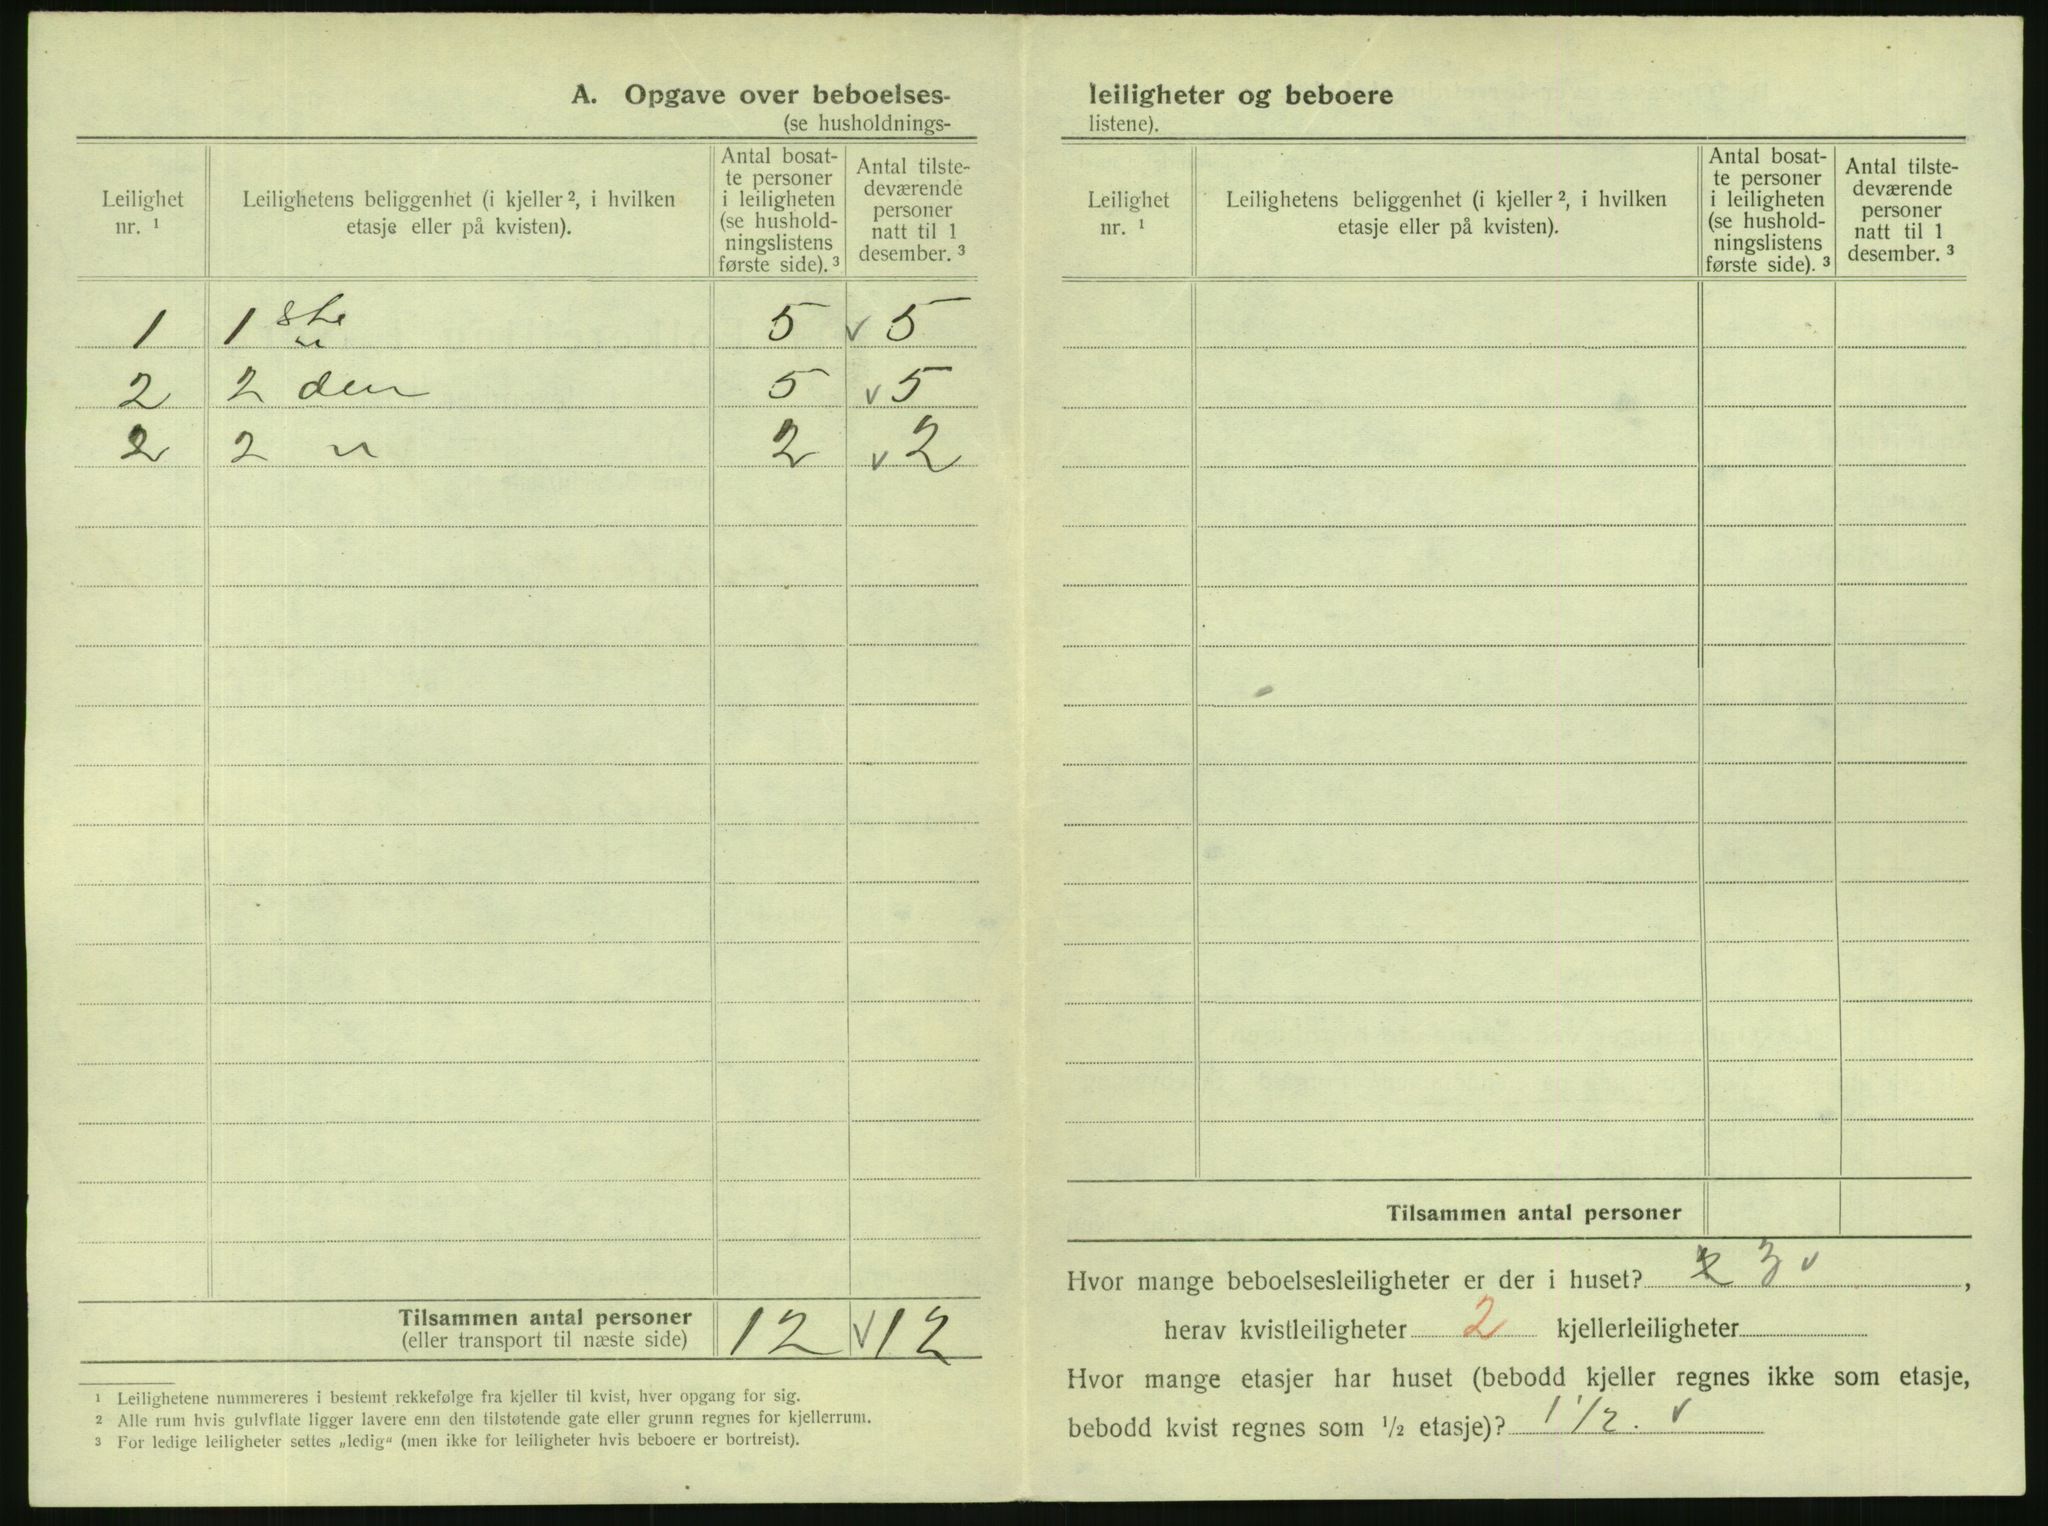 A. Opgave over beboelses-
(se husholdnings-
Leilighet nr. ¹
Leilighetens beliggenhet (i kjeller ², i hvilken
etasje eller på kvisten).
Antal bosat-
te personer
i leiligheten
(se hushold-
ningslistens
første side). ³
Antal tilste-
deværende
personer
natt til 1
desember. ³
1 1 ste 5 v 5
2 2 den 5 v 5
2 2 " 2 v 2
Tilsammen antal personer
(eller transport til næste side)
12 v 12
¹ Leilighetene nummereres i bestemt rekkefølge fra kjeller til kvist, hver opgang for sig.
² Alle rum hvis gulvflate ligger lavere enn den tilstøtende gate eller grunn regnes for kjellerrum.
³ For ledige leiligheter settes „ledig“ (men ikke for leiligheter hvis beboere er bortreist).
leiligheter og beboere
listene).
Leilighet
nr. ¹
Leilighetens beliggenhet (i kjeller ², i hvilken
etasje eller på kvisten).
Antal bosat-
te personer
i leiligheten
(se hushold-
ningslistens
første side). ³
Antal tilste-
deværende
personer
natt til 1
desember. ³
Tilsammen antal personer
Hvor mange beboelsesleiligheter er der i huset? 3 v ,
herav kvistleiligheter 2 kjellerleiligheter
Hvor mange etasjer har huset (bebodd kjeller regnes ikke som etasje,
bebodd kvist regnes som ½ etasje)? 1 1/2. v